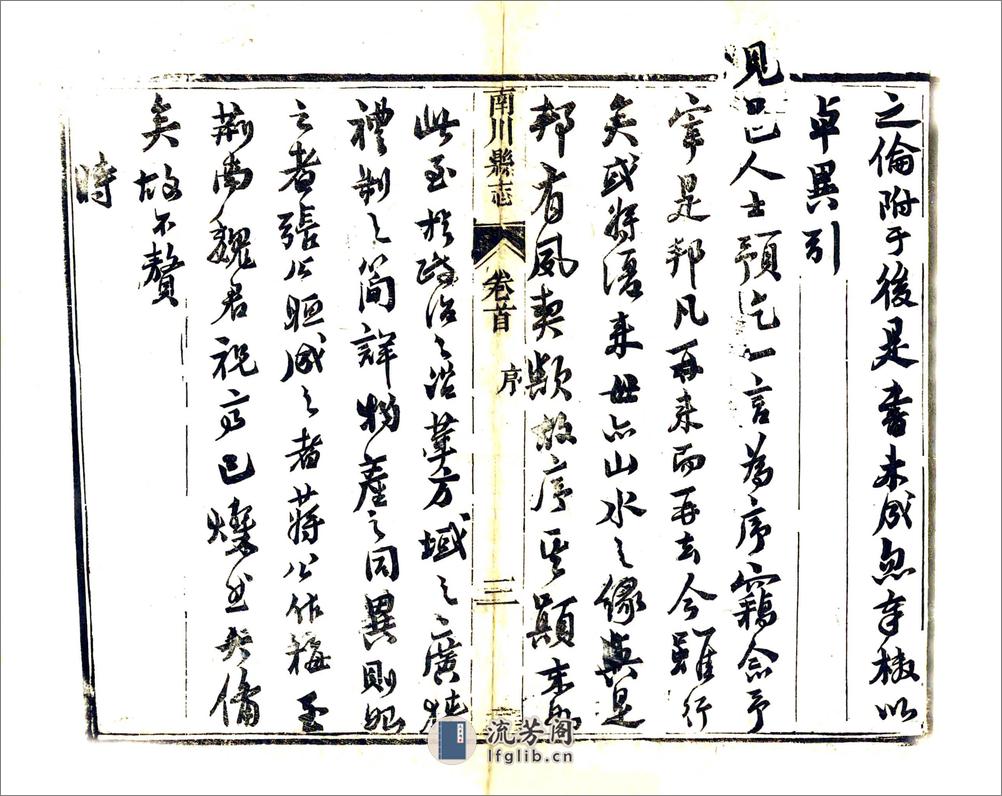 之倫附于後是書未成忽奉檄以
卓異引
見邑人士預乞一言為序竊念予
宰是邦凡再來而再去今雖行
矣或將復來毋亦山水之緣與是
邦有夙契歟故序其顛末如
南川縣志 卷首 序 三
此至於政治之沿革方域之廣狹
禮制之簡詳物產之同異則
之者張公 成之者蔣公作梅至
荊南魏君祝亭已燦然大備
矣故不贅
時
流芳阁
lfglib.cn